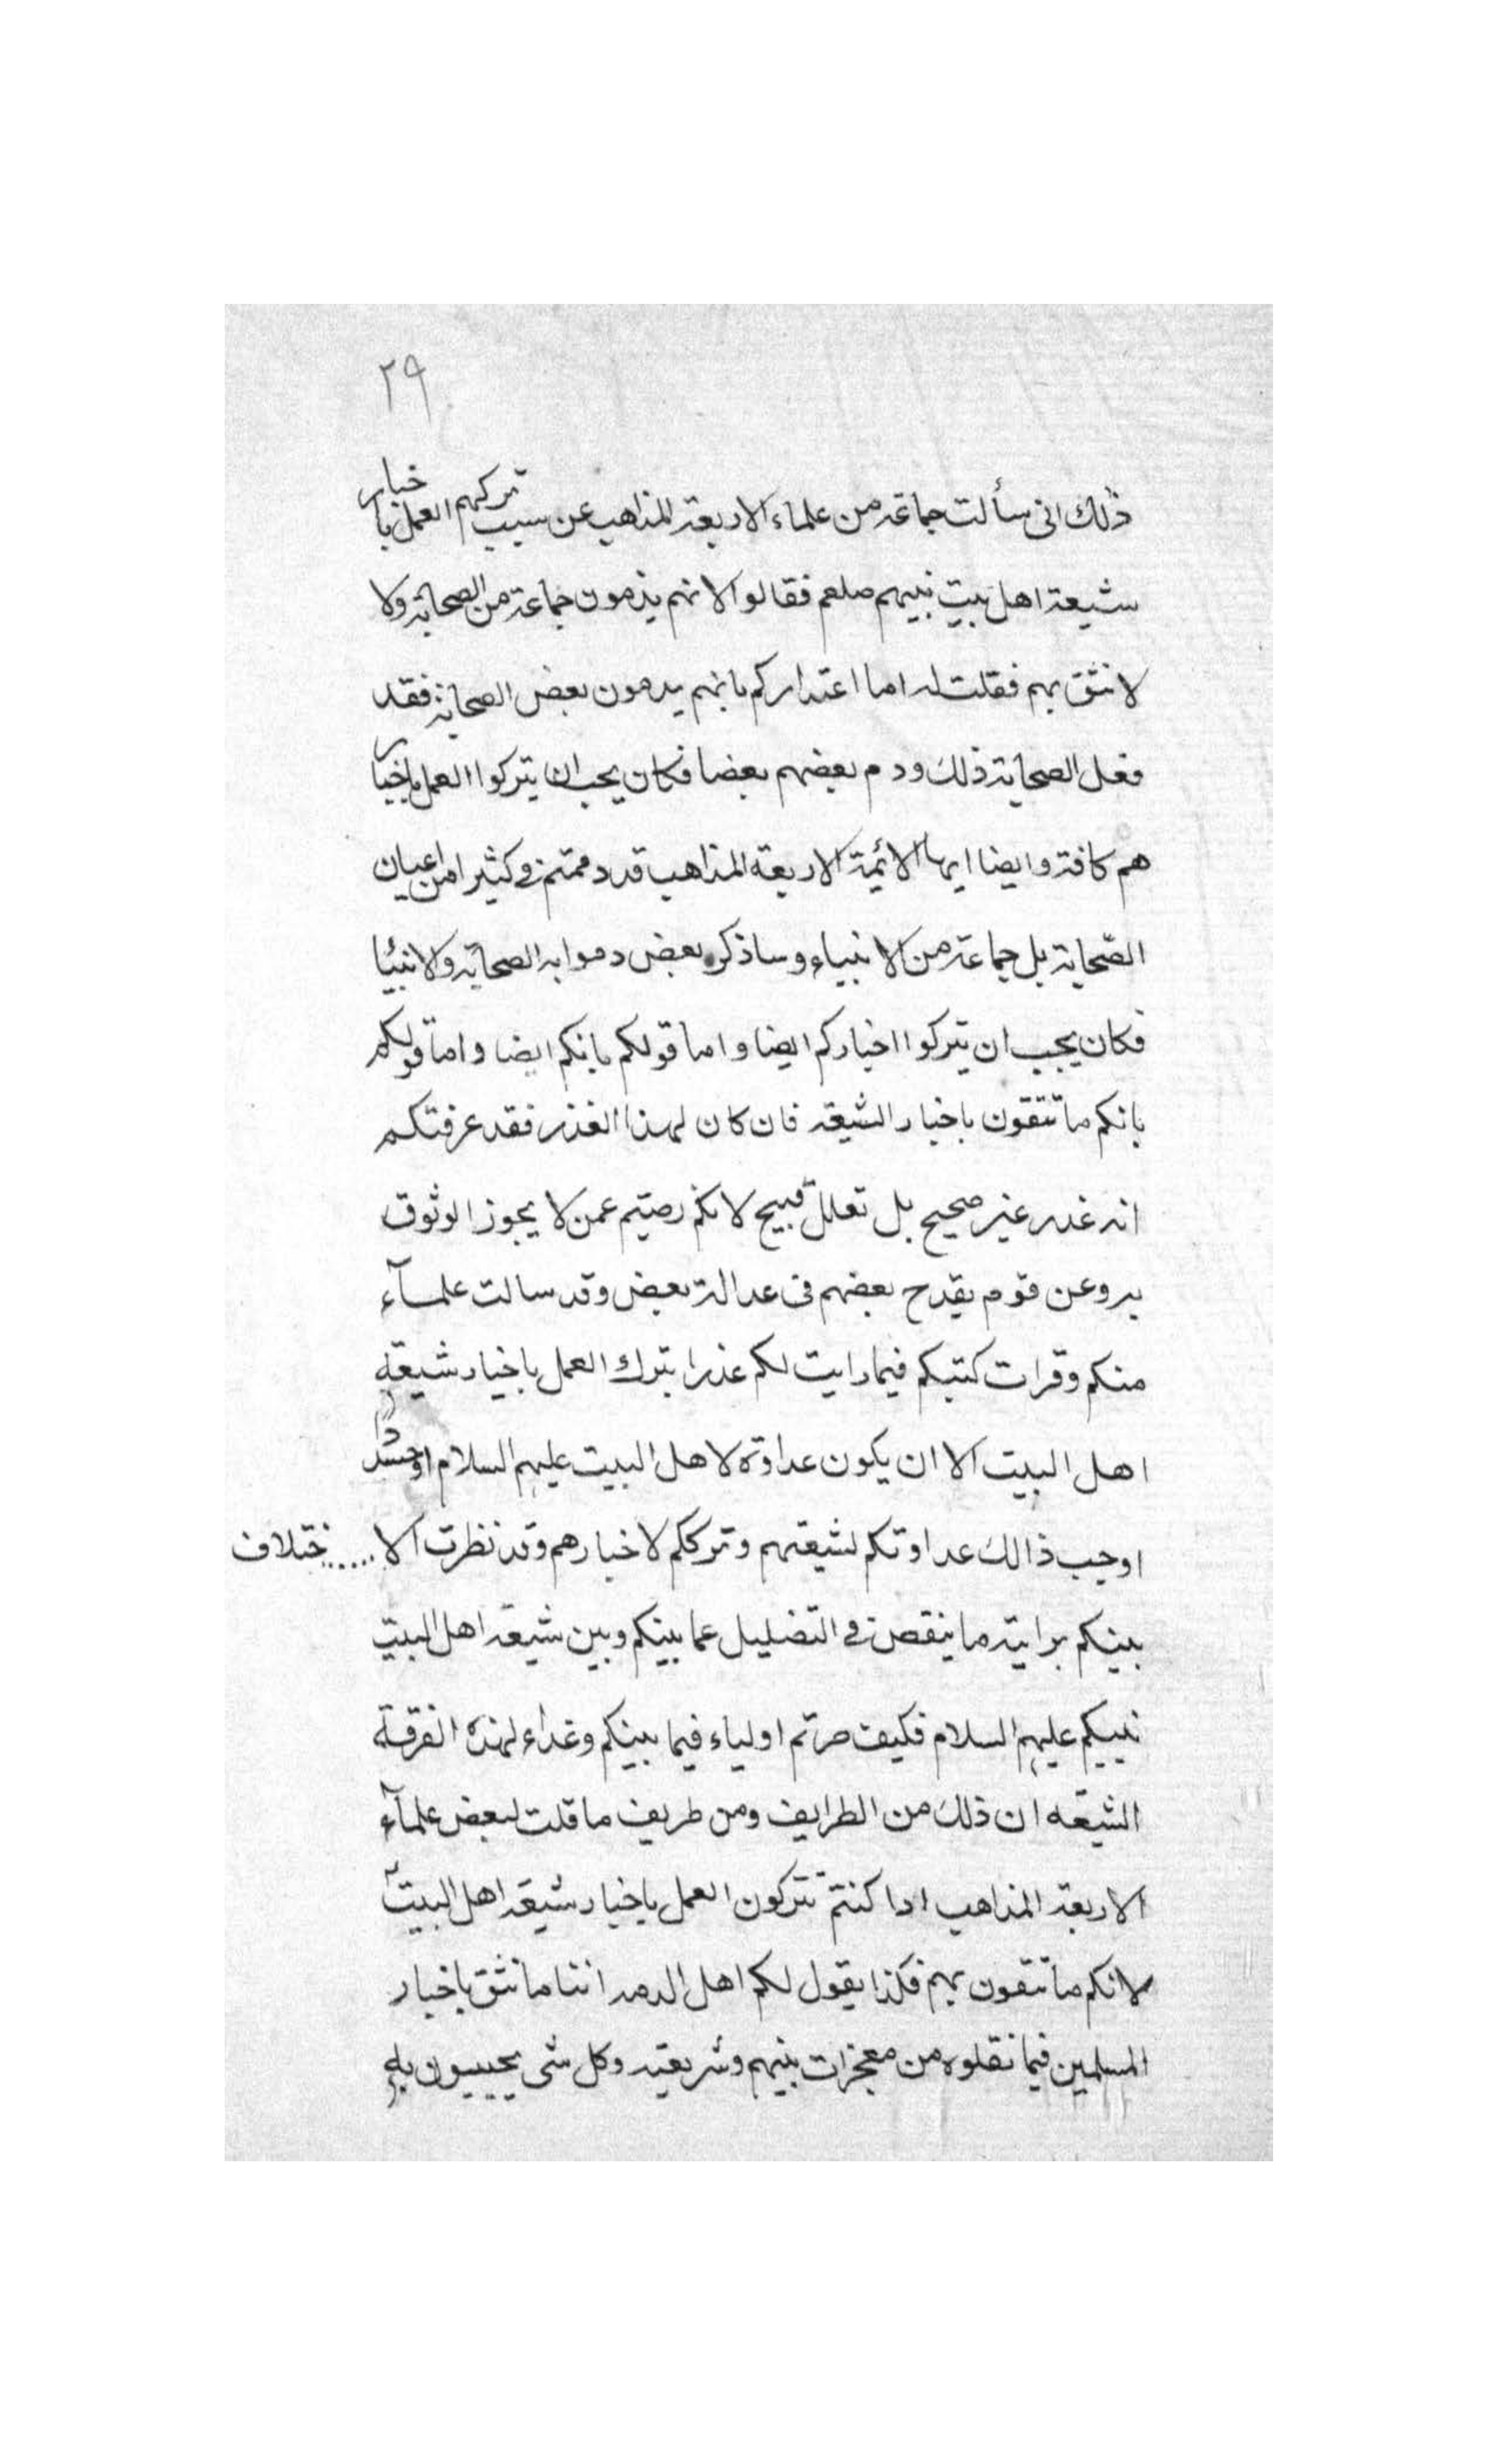 ٢٩
ذلك انى سألت جماعة من علماء الاربعة المذاهب عن سبب تركهم العمل باخبار
شيعة اهل بيت نبيهم صلعم فقالوا لانهم يذمون جماعة من الصحابة ولا
لا نثق بهم فقلت له اما اعتداركم بانهم يدمون بعض الصحابة فقد
فعل الصحابة ذلك ودم بعضهم بعضا فكان يجب ان يتركوا العمل باخبار
هم كافة وايضا ايها الائمة الاربعة المذاهب قد دممتم فى كثير امن اعيان
الصّحابة بل جماعة من الانبياء وساذكر بعض دموا به الصحابة ولانبيا
فكان يجب ان يتركوا اخباركم ايضا واما قولكم بانكم ايضا واما قولكم
بانكم ما تثقون باخبار الشيعة فان كان لهذا الغذر فقد عرفتكم
انه غدر غير صحيح بل تعلل قبيح لانكم رصيتم عمن لا يجوز الوثوق
به وعن قوم يقدح بعضهم فى عدالة بعض وقد سالت علمآء
منكم وقرات كتبكم فيما رايت لكم عذرا بترك العمل باخبار شيعة
اهل البيت الا ان يكون عداوة لاهل البيت عليهم السلام او حسدا
اوجب ذالك عداوتكم لشيعتهم وترككم لاخبارهم وقد نظرت الا......ختلاف
بينكم برايته ما ينقص فى التضليل عما بينكم وبين شيعة اهل البيت
نبيكم عليهم السلام فكيف صرتم اولياء فيما بينكم وغداء لهذه الفرقة
الشيعه ان ذلك من الطرايف ومن طريف ما قلت لبعض علمآء
الاربعة المذاهب ادا كنتم تتركون العمل باخبار شيعة اهل البيت
لانكم ما تتقون بهم فكذا يقول لكم اهل الدمه اننا ما نثق باخبار
المسلمين فيما نقلوه من معجزات بنيهم وشريعته وكل شى يجيبون به